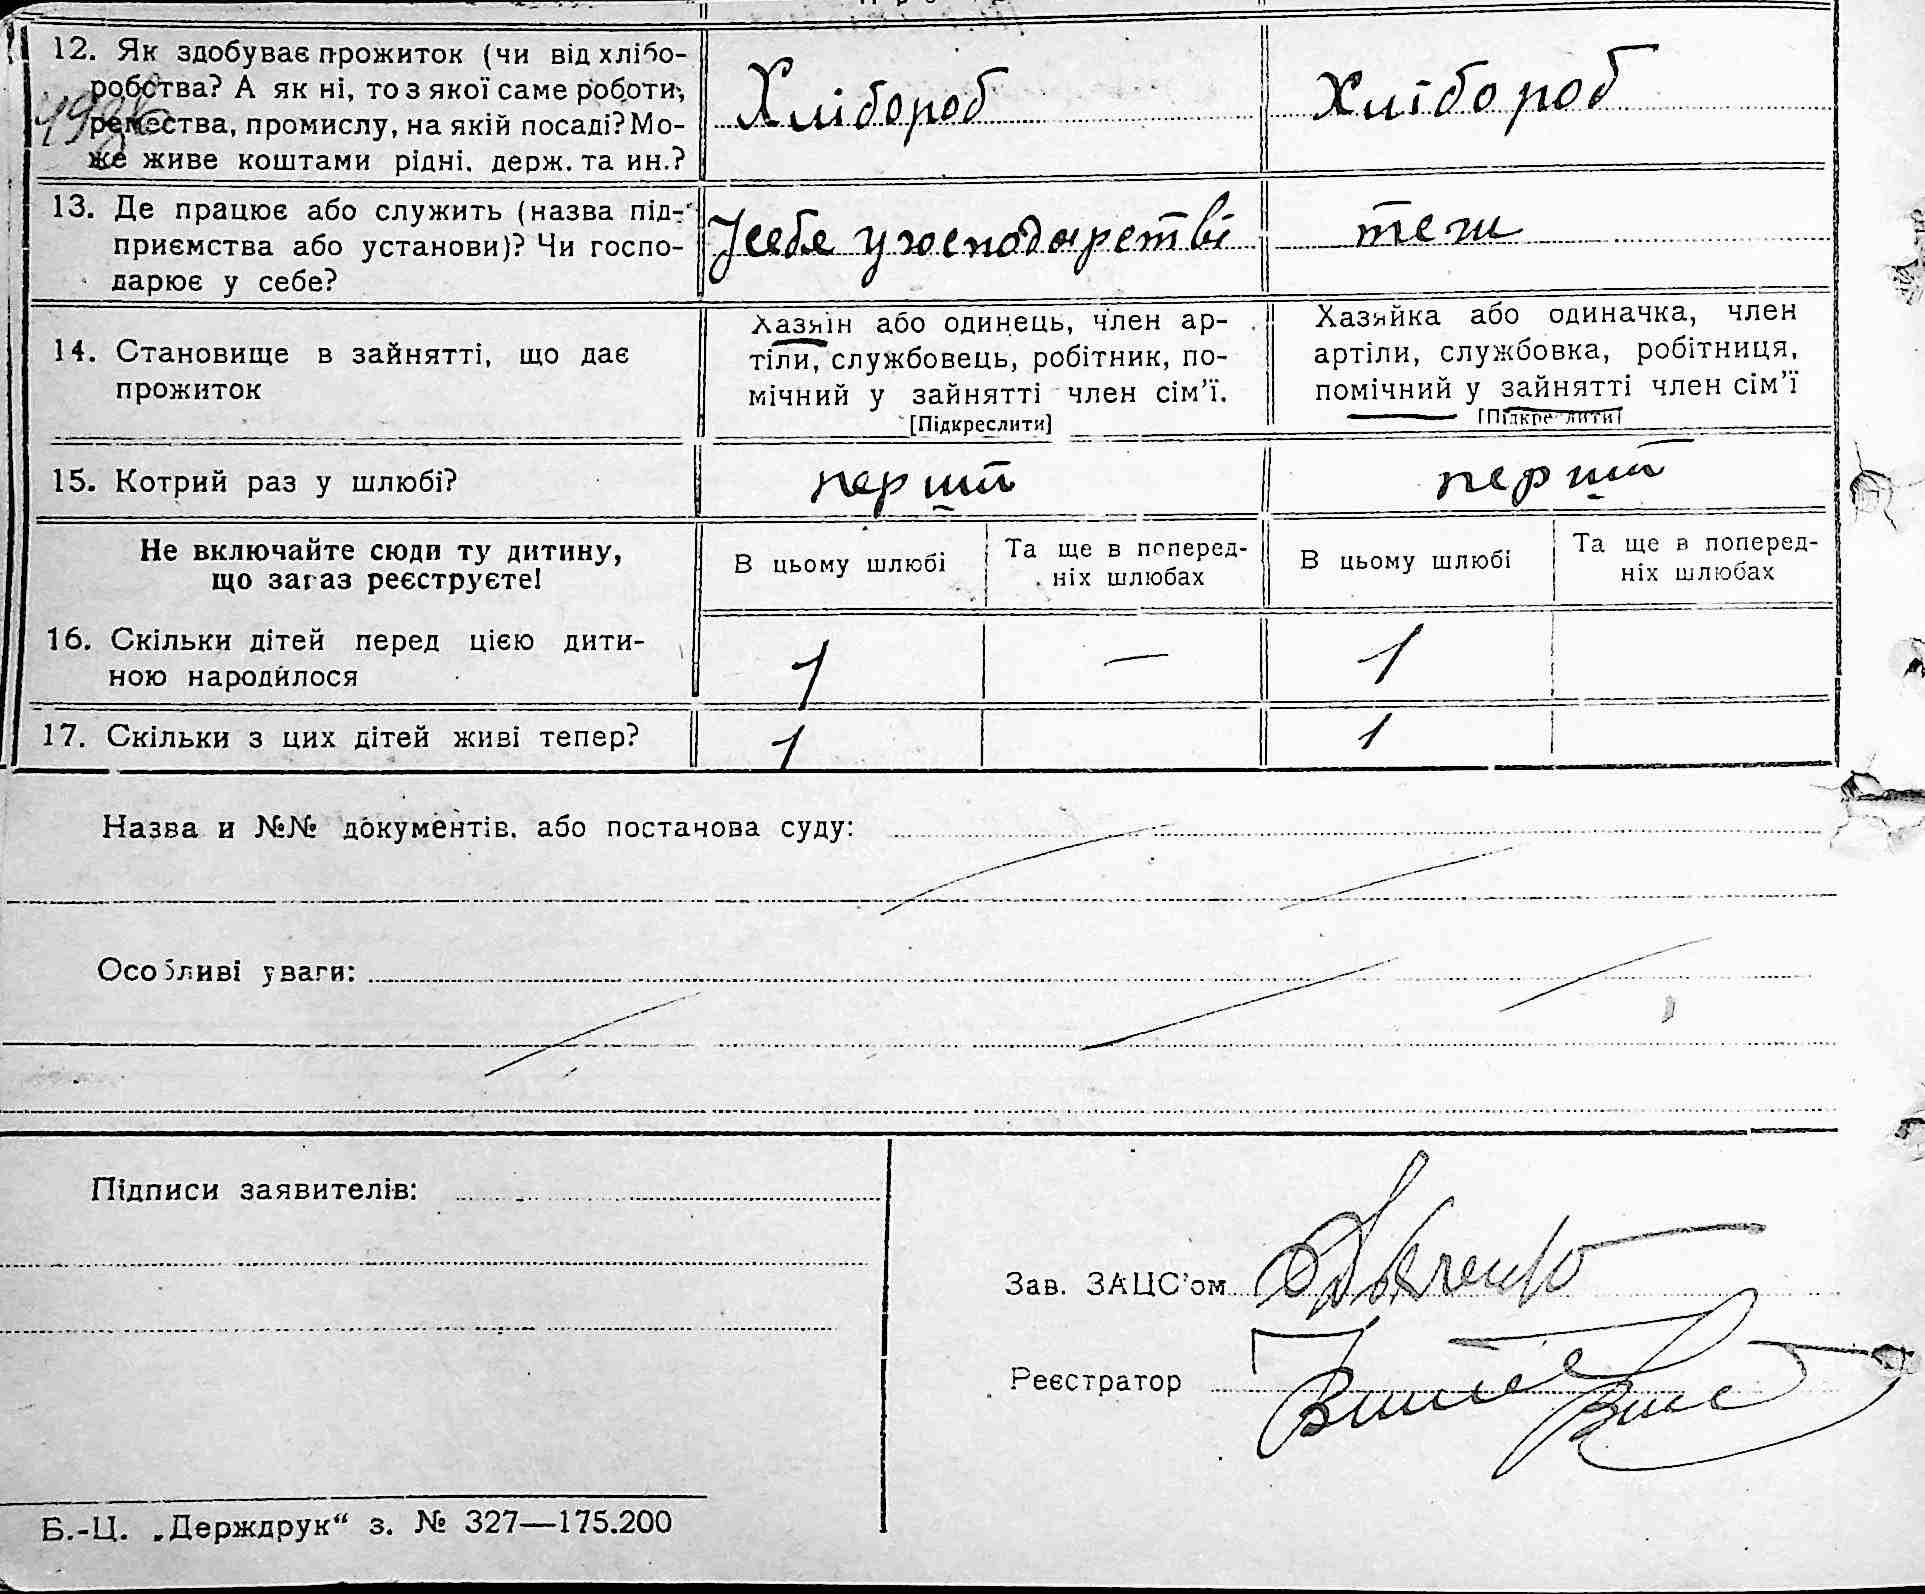 12. Як здобуває прожиток (чи від хлібо-
робства? А як ні, то з якої саме роботи,
ремества, промислу, на якій посаді? Мо-
же живе коштами рідні. держ. та ин.?
Хлібороб
Хлібороб
13. Де працює або служить (назва під-
приємства або установи)? Чи госпо-
дарює у себе?
У себе у господарстві
теж
14. Становище в зайнятті, що дає
прожиток
Хазяїн або одинець, член ар-
тіли, службовець, робітник, по-
мічний у зайнятті член сім'ї.
[Підкреслити]
Хазяйка або одиначка, член
артіли, службовка, робітниця,
помічний у зайнятті член сім'ї
[Підкреслити]
15. Котрий раз у шлюбі?
перший
перший
Не включайте сюди ту дитину,
що зараз реєструєте!
В цьому шлюбі
Та ще в поперед-
ніх шлюбах
В цьому шлюбі
Та ще в поперед-
ніх шлюбах
16. Скільки дітей перед цією дити-
ною народилося
1
—
1
17. Скільки з цих дітей живі тепер?
1
1
Назва и №№ документів, або постанова суду:
Особливі уваги:
Підписи заявителів:
Зав. ЗАЦС'ом
Реєстратор
Б.-Ц. „Держдрук“ з. № 327—175.200